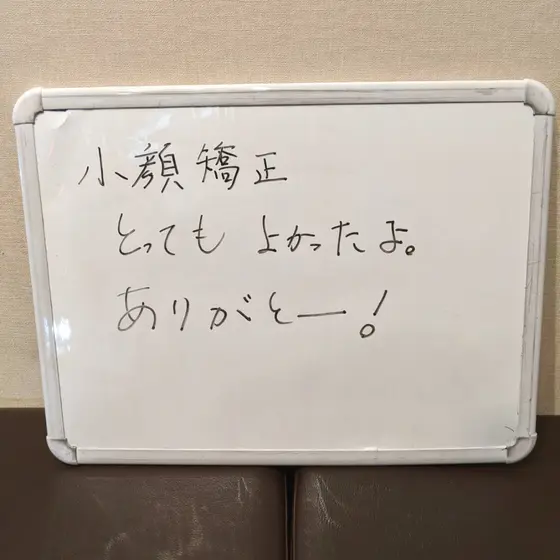 小顔矯正
とっても よかったよ。
ありがとー!